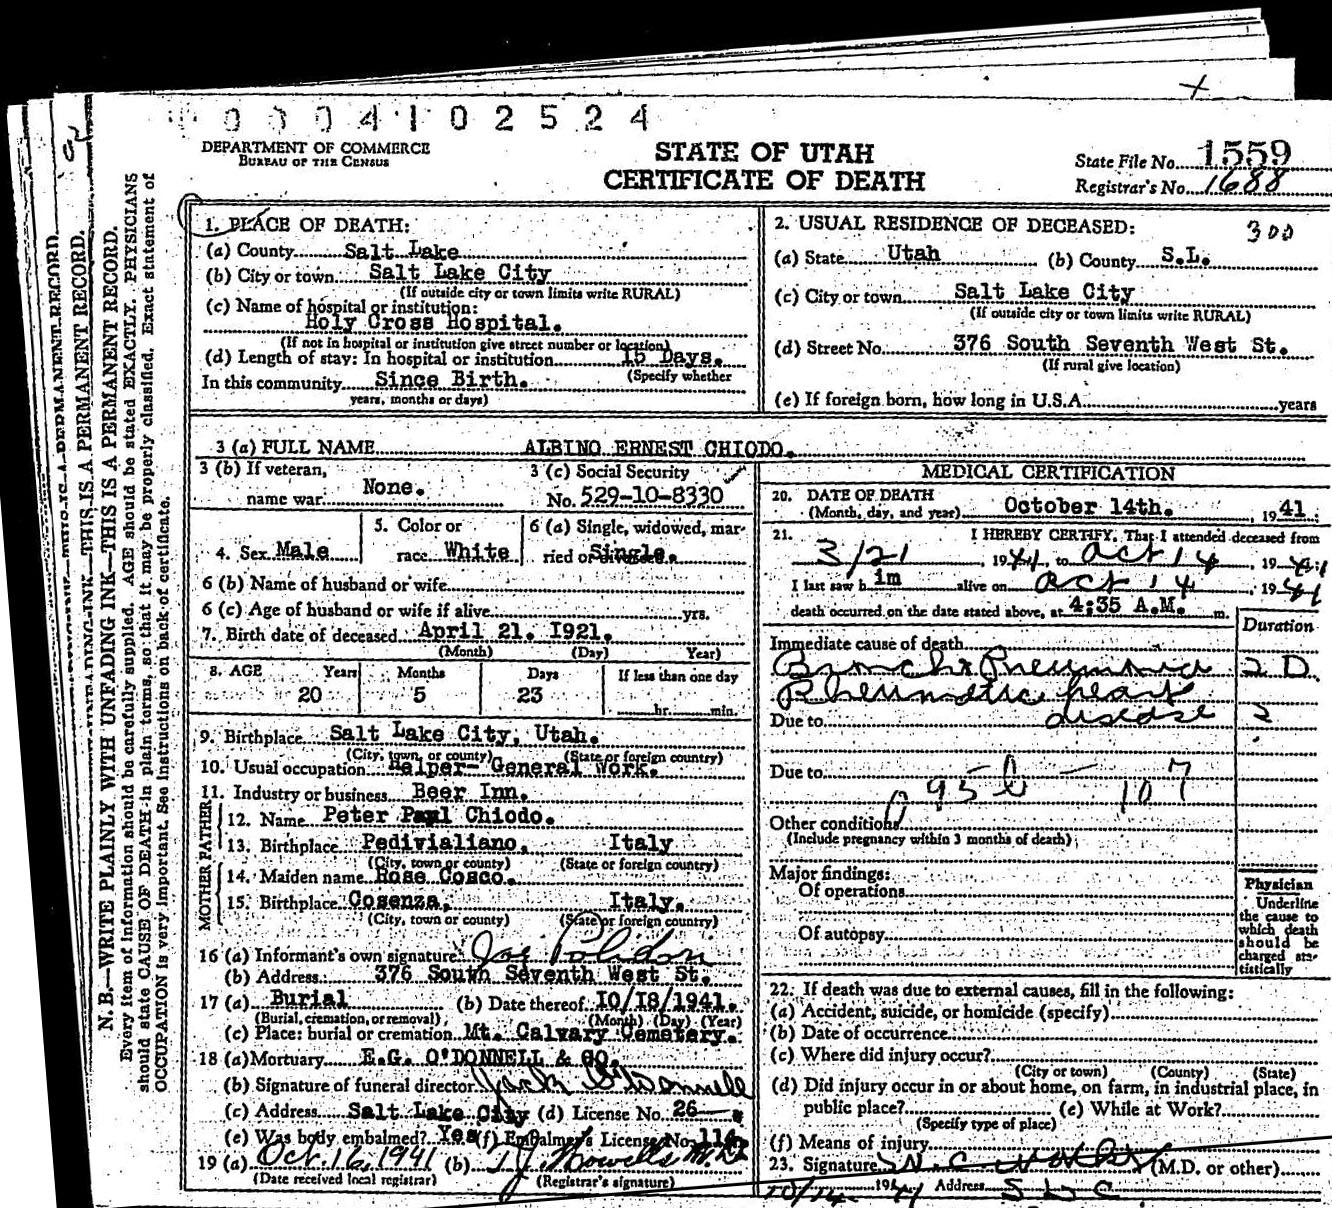 0004102524
DEPARTMENT OF COMMERCE
BUREAU OF THE CENSUS
STATE OF UTAH
CERTIFICATE OF DEATH
State File No. 1559
Registrar's No. 1688
N. B.—WRITE PLAINLY WITH UNFADING INK—THIS IS A PERMANENT RECORD.
Every item of information should be carefully supplied. AGE should be stated EXACTLY. PHYSICIANS
should state CAUSE OF DEATH in plain terms, so that it may be properly classified. Exact statement of
OCCUPATION is very important. See instructions on back of certificate.
1. PLACE OF DEATH:
(a) County Salt Lake
(b) City or town Salt Lake City
(If outside city or town limits write RURAL)
(c) Name of hospital or institution:
Holy Cross Hospital.
(If not in hospital or institution give street number or location)
(d) Length of stay: In hospital or institution 15 Days.
(Specify whether
In this community Since Birth.
years, months or days)
2. USUAL RESIDENCE OF DECEASED: 300
(a) State Utah (b) County S.L.
(c) City or town Salt Lake City
(If outside city or town limits write RURAL)
(d) Street No. 376 South Seventh West St.
(If rural give location)
(e) If foreign born, how long in U.S.A. years
3 (a) FULL NAME ALBINO ERNEST CHIODO.
3 (b) If veteran,
name war None.
3 (c) Social Security
No. 529-10-8330
4. Sex Male
5. Color or
race White
6 (a) Single, widowed, mar-
ried or divorced Single.
6 (b) Name of husband or wife
6 (c) Age of husband or wife if alive yrs.
7. Birth date of deceased April 21. 1921.
(Month) (Day) Year)
8. AGE Years Months Days If less than one day
20 5 23 hr. min.
9. Birthplace Salt Lake City, Utah.
(City, town, or county) (State or foreign country)
10. Usual occupation Helper- General Work.
11. Industry or business Beer Inn.
FATHER
12. Name Peter Paul Chiodo.
13. Birthplace Pedivialiano, Italy
(City, town or county) (State or foreign country)
MOTHER
14. Maiden name Rose Cosco.
15. Birthplace Cosenza, Italy.
(City, town or county) (State or foreign country)
16 (a) Informant's own signature Joe Polidori
(b) Address: 376 South Seventh West St.
17 (a) Burial (b) Date thereof 10/18/1941.
(Burial, cremation, or removal) (Month) (Day) (Year)
(c) Place: burial or cremation Mt. Calvary Cemetery.
18 (a) Mortuary E.G. O'DONNELL & CO.
(b) Signature of funeral director Jack O'Donnell
(c) Address Salt Lake City (d) License No. 26
(e) Was body embalmed? Yes (f) Embalmer's License No.
19 (a) Oct. 16, 1941 (b) T.J. Howells M.D.
(Date received local registrar) (Registrar's signature)
MEDICAL CERTIFICATION
20. DATE OF DEATH
(Month, day, and year) October 14th. , 1941.
21. I HEREBY CERTIFY, That I attended deceased from
3/21 , 1941, to Oct 14 , 1941
I last saw h im alive on Oct 14 , 1941
death occurred on the date stated above, at 4:35 A.M. m.
Duration
Immediate cause of death
Broncho Pneumonia 2 D.
Rheumatic heart
Due to disease 2
Due to 95b — 107
Other conditions
(Include pregnancy within 3 months of death)
Major findings:
Of operations
Of autopsy
Physician
Underline
the cause to
which death
should be
charged sta-
tistically
22. If death was due to external causes, fill in the following:
(a) Accident, suicide, or homicide (specify)
(b) Date of occurrence
(c) Where did injury occur?
(City or town) (County) (State)
(d) Did injury occur in or about home, on farm, in industrial place, in
public place? (e) While at Work?
(Specify type of place)
(f) Means of injury
23. Signature (M.D. or other)
10/14 1941 Address S L C